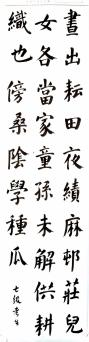 晝出耘田夜績麻邨莊兒
女各當家童孫未解供耕
織也傍桑陰學種瓜
七級考生